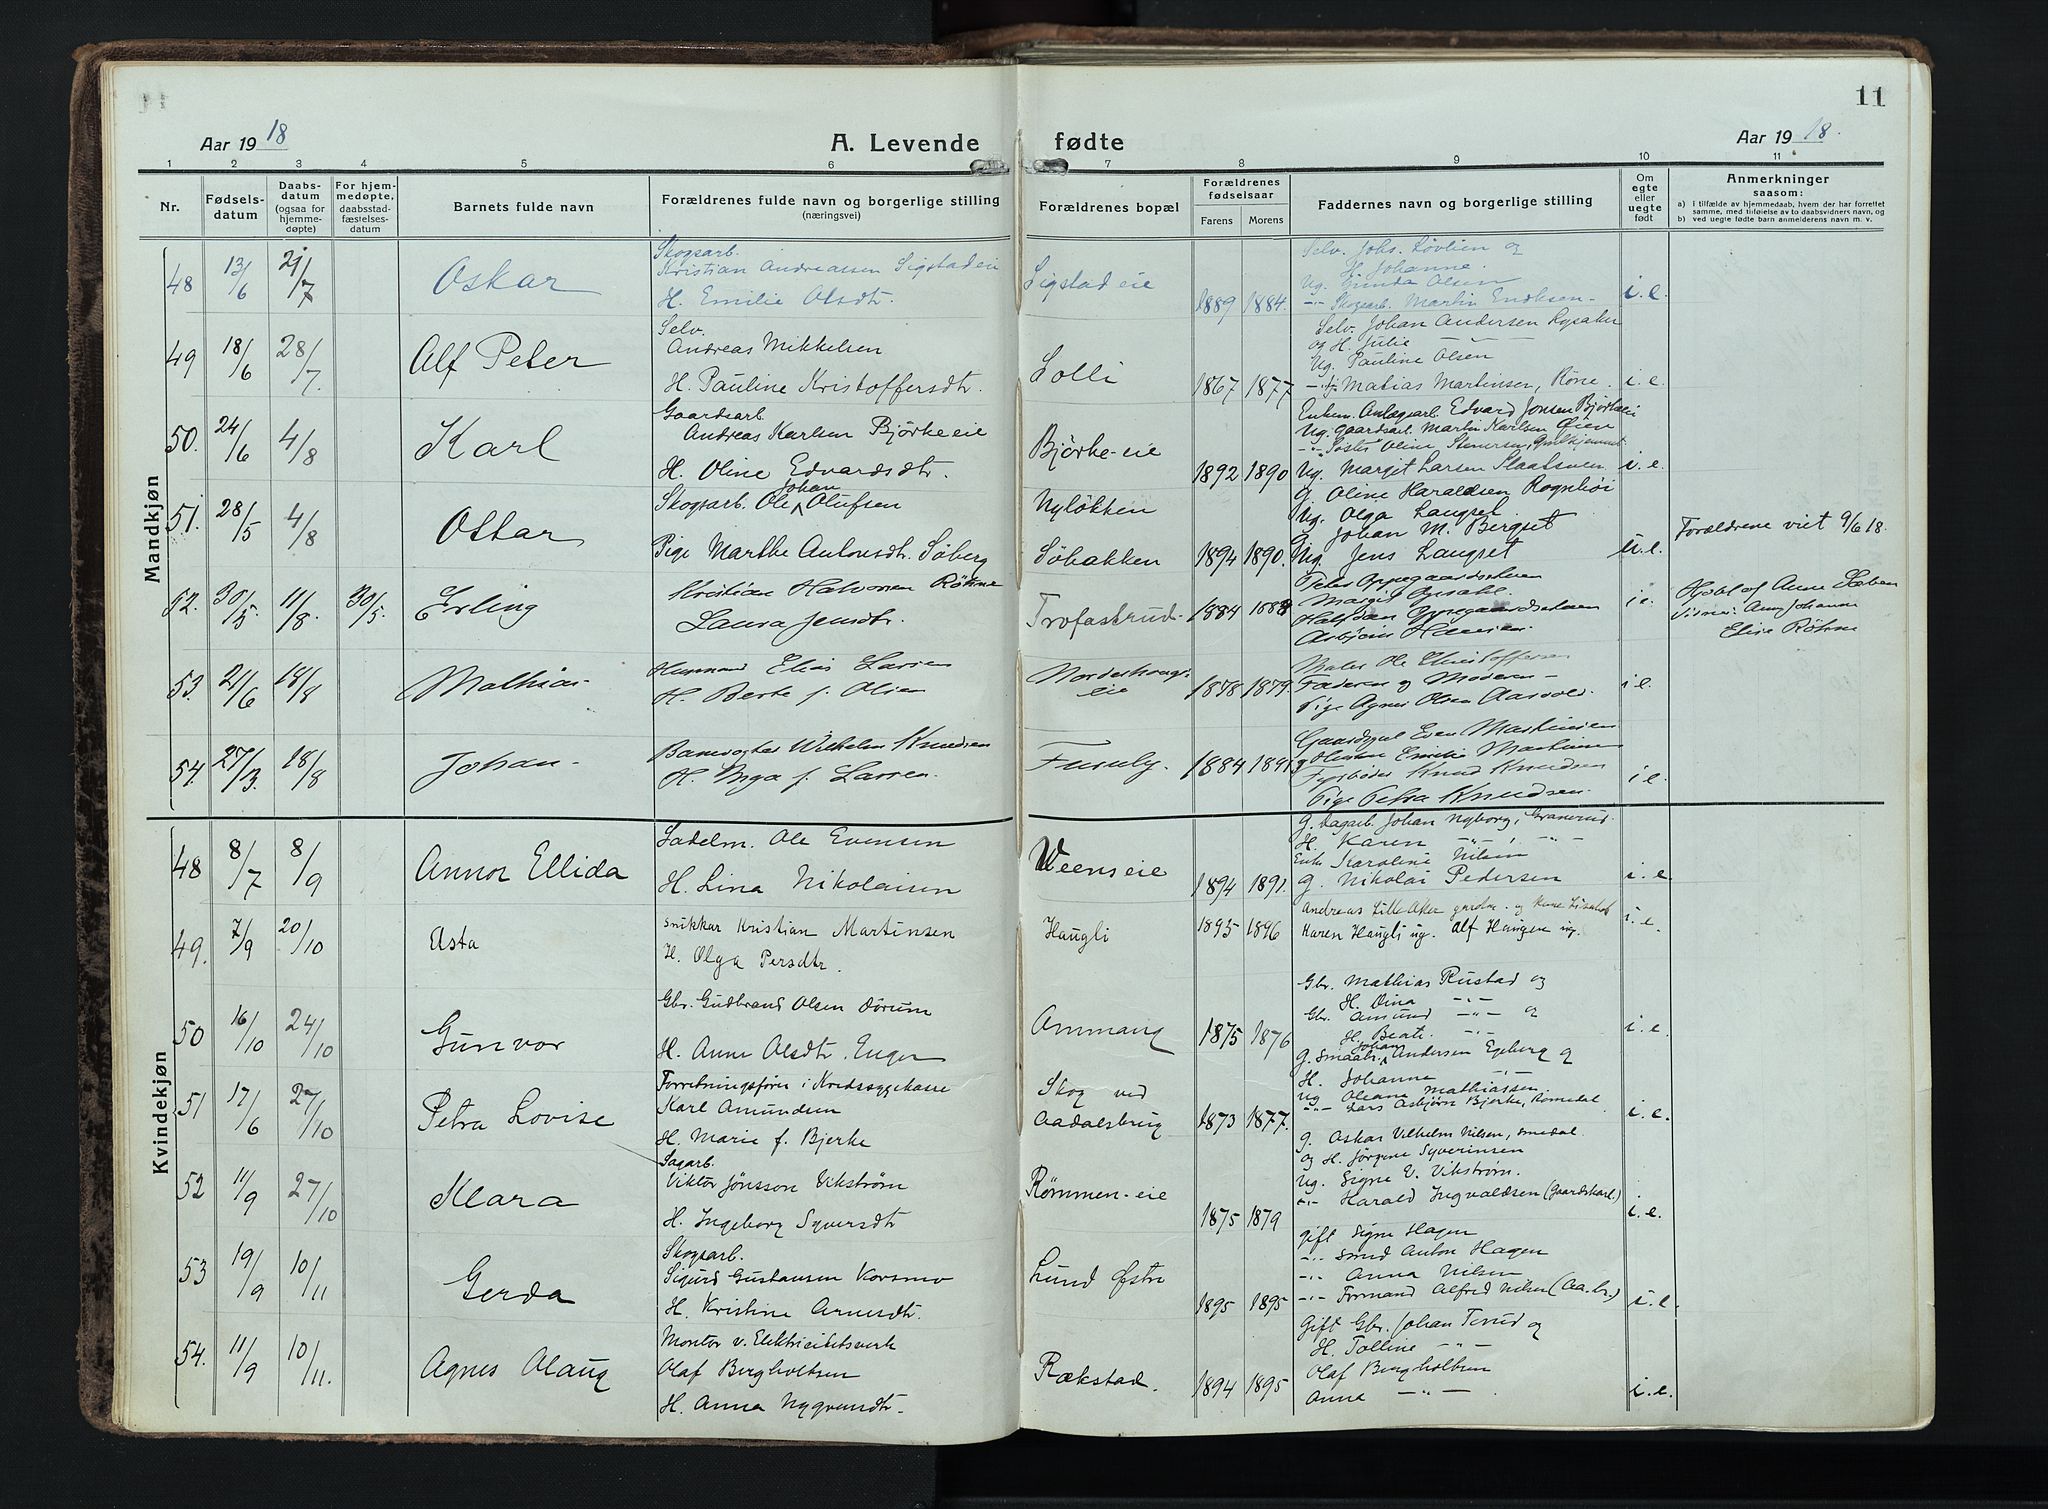 11
Aar 1918
A. Levende fødte
Aar 1918.
1 2 3 4 5 6 7 8 9 10 11
Nr.
Fødsels-
datum
Daabs-
datum
(ogsaa for
hjemme-
døpte)
For hjem-
medøpte,
daabsstad-
fæstelses-
datum
Barnets fulde navn
Forældrenes fulde navn og borgerlige stilling
(næringsvei)
Forældrenes bopæl
Forældrenes
fødselsaar
Farens Morens
Faddernes navn og borgerlige stilling
Om
egte
eller
uegte
født
Anmerkninger
saasom:
a) i tilfælde av hjemmedaab, hvem der har forrettet
samme, med tilføielse av to daabsvidners navn, og
b) ved uegte fødte barn anmelderens navn m. v.
Mandkjøn
48 13/6 21/7 Oskar
Skogsarb.
Kristian Andreassen Sigstadeie
H. Emilie Olsdtr.
Sigstadeie 1889 1884.
Selv. Johs. Løvlien og
H. Johanne.
Ug. Gunda Olsen
-"- Skogsarb. Martin Eriksen-
i. e.
49 18/6 28/7. Alf Peter
Selv.
Andreas Mikkelsen
H. Pauline Kristoffersdtr.
Lolli 1867 1877
Selv. Johan Andersen Lysaker
og H. Julie -"-
Ug. Pauline Olsen
-"- Matias Martinsen, Røne.
i. e.
50. 24/6 4/8 Karl
Gaardsarb.
Andreas Karlsen Bjørkeeie
H. Oline Edvardsdtr.
Bjørke-eie 1892 1890
Enkem. Anlægsarb. Edvard Jonsen Bjørkeeie
Ug. Gaardsarb. Martin Karlsen Øien
-"- Søster Oline Stenersen,
Ug. Margit Larsen Slaatsveen
i. e.
51. 28/5 4/8 Ottar
Skogsarb. Ole Johan Olufsen
Pige Marthe Antonsdtr. Søberg
Nyløkken
Søbakken 1894 1890.
G. Oline Haraldsen Rognhøi
Ug. Olga Laugset.
G. Johan M. Bergset
Ug. Jens Laugset
u. e.
Forældrene viet 9/6 18.
52. 30/5 11/8. 30/5. Erling
Kristian Halvorsen Røhne
Laura Jensdtr.
Trofastrud- 1884 1888
Peter Oppegaardshaven
Margit Opsahl
Halfdan Oppegaardshaven
Asbjørn Hansen
i e.
Hjdbt af Anne Sæben
Vidner: Anny Johanne
Elise Røhne
53. 21/6 18/8 Mathias-
Husmand Elias Larsen
H. Berte f. Olsen
Norderhougs-
eie 1878 1879.
Maler Ole Christoffersen
Faderen og Moderen-
Pige Agnes Olsen Aasvold
i e.
54. 27/3. 18/8 Johan-
Banevogter Wilhelm Knudsen
H. Inga f. Larsen.
Furuly. 1884 1891
Gaardbrul Even Martinsen
og Hustru Emilie Martinsen
Fyrbøder Knud Knudsen
Pige Petra Knudsen.
i e.
Kvindekjøn
48 8/7 8/9 Annor Ellida
Sadelm. Ole Evensen
H. Lina Nikolaisen
Veenseie 1894 1891.
G. Dagarb. Johan Nyborg, Granerud.
H. Karen -"-, -"-
Enke Karoline Nilsen
G. Nikolai Pedersen
i. e.
49. 7/9 20/10 Asta
Snikkar Kristian Martinsen
H. Olga Persdtr.
Haugli 1895 1896
Andreas Lille Aker gardm. og kone Liselot
Karen Haugli ug. Alf Haugen ug.
i. e.
50 16/10 24/10 Gunvor
Gbr. Gudbrand Olsen Dørum
H. Anne Olsdtr. Enger
Ammang 1875 1876
Gbr. Mathias Rustad og
H. Dina -"-
Gbr. Amund -"- og
H. Beate. -"-
i. e.
51 17/6 27/10 Petra Lovise
Forretningsfører i Kredssygekasse
Karl Amundsen
H. Marie f. Bjerke
Skog ved
Aadalsbrug 1873 1877.
G. Smaabr. Johan Andersen Egeberg og
H. Johanne -"-
Ug Oleane Mathiassen
-"- Lars Asbjørn Bjerke, Romedal.
i. e.
52 11/9 27/10 Klara
Sagarb.
Viktor Jönsson Vikstrøm
H. Ingeborg Syversdtr
Rømmen-eie 1875 1879
G. Oskar Vilhelm Nilsen, Smedal.
og H. Jørgine Syverinsen
Ug. Signe V. Vikstrøm.
-"- Harald Ingvaldsen (Gaardskarl.)
i. e.
53 19/9 10/11 Gerda
Skogsarb.
Sigurd Gustavsen Korsmo
H. Kristine Arnesdtr.
Lund Østre 1895 1895
Gift Signe Hagen
-"- Smed Anton Hagen
-"- Anna Nilsen
-"- Formand Alfred Nilsen (Aa.br.)
i. e.
54. 11/9 10/11. Agnes Olaug
Montør v. Elektricitetsverk
Olaf Bergholtsen
H. Anna Nygrundtr-
Rækstad. 1894 1895
Gift Gbr. Johan Terud og
H. Tolline -"-
Olaf Bergholtsen
Anne -"-
i. e.